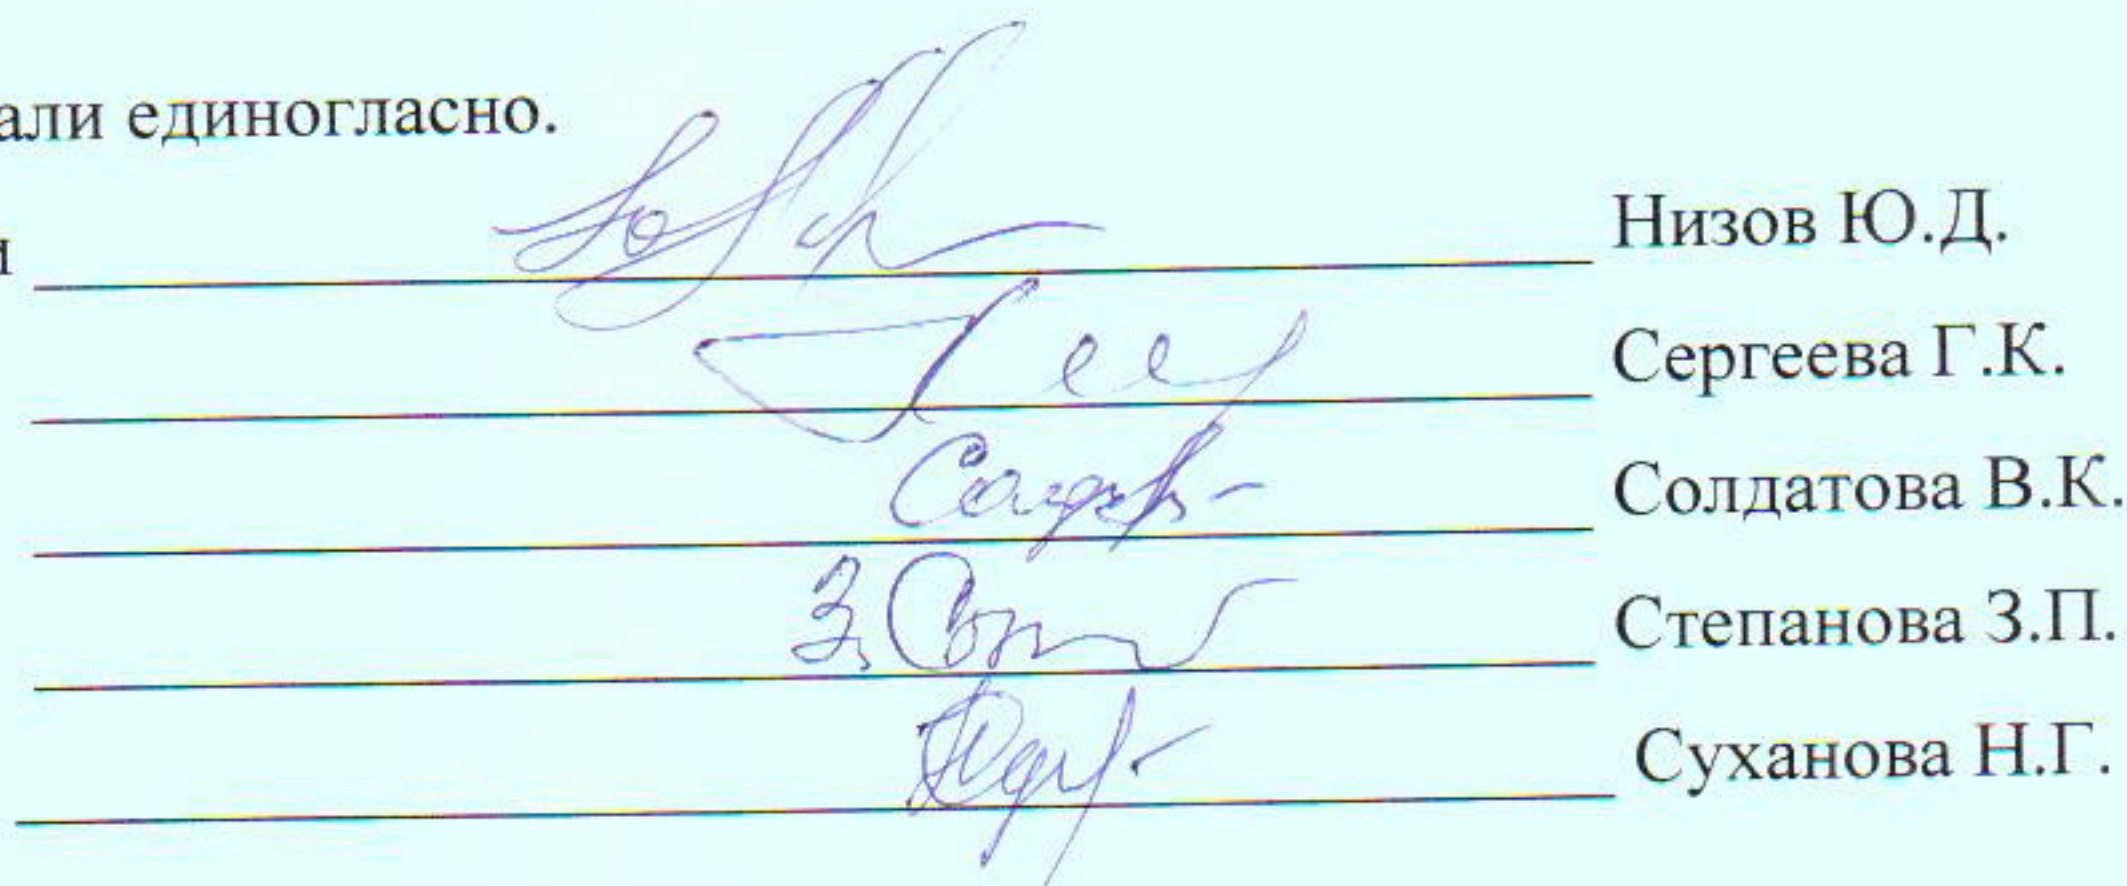 али единогласно.
и Низов Ю.Д.
Сергеева Г.К.
Солдатова В.К.
З. Степанова З.П.
Суханова Н.Г.